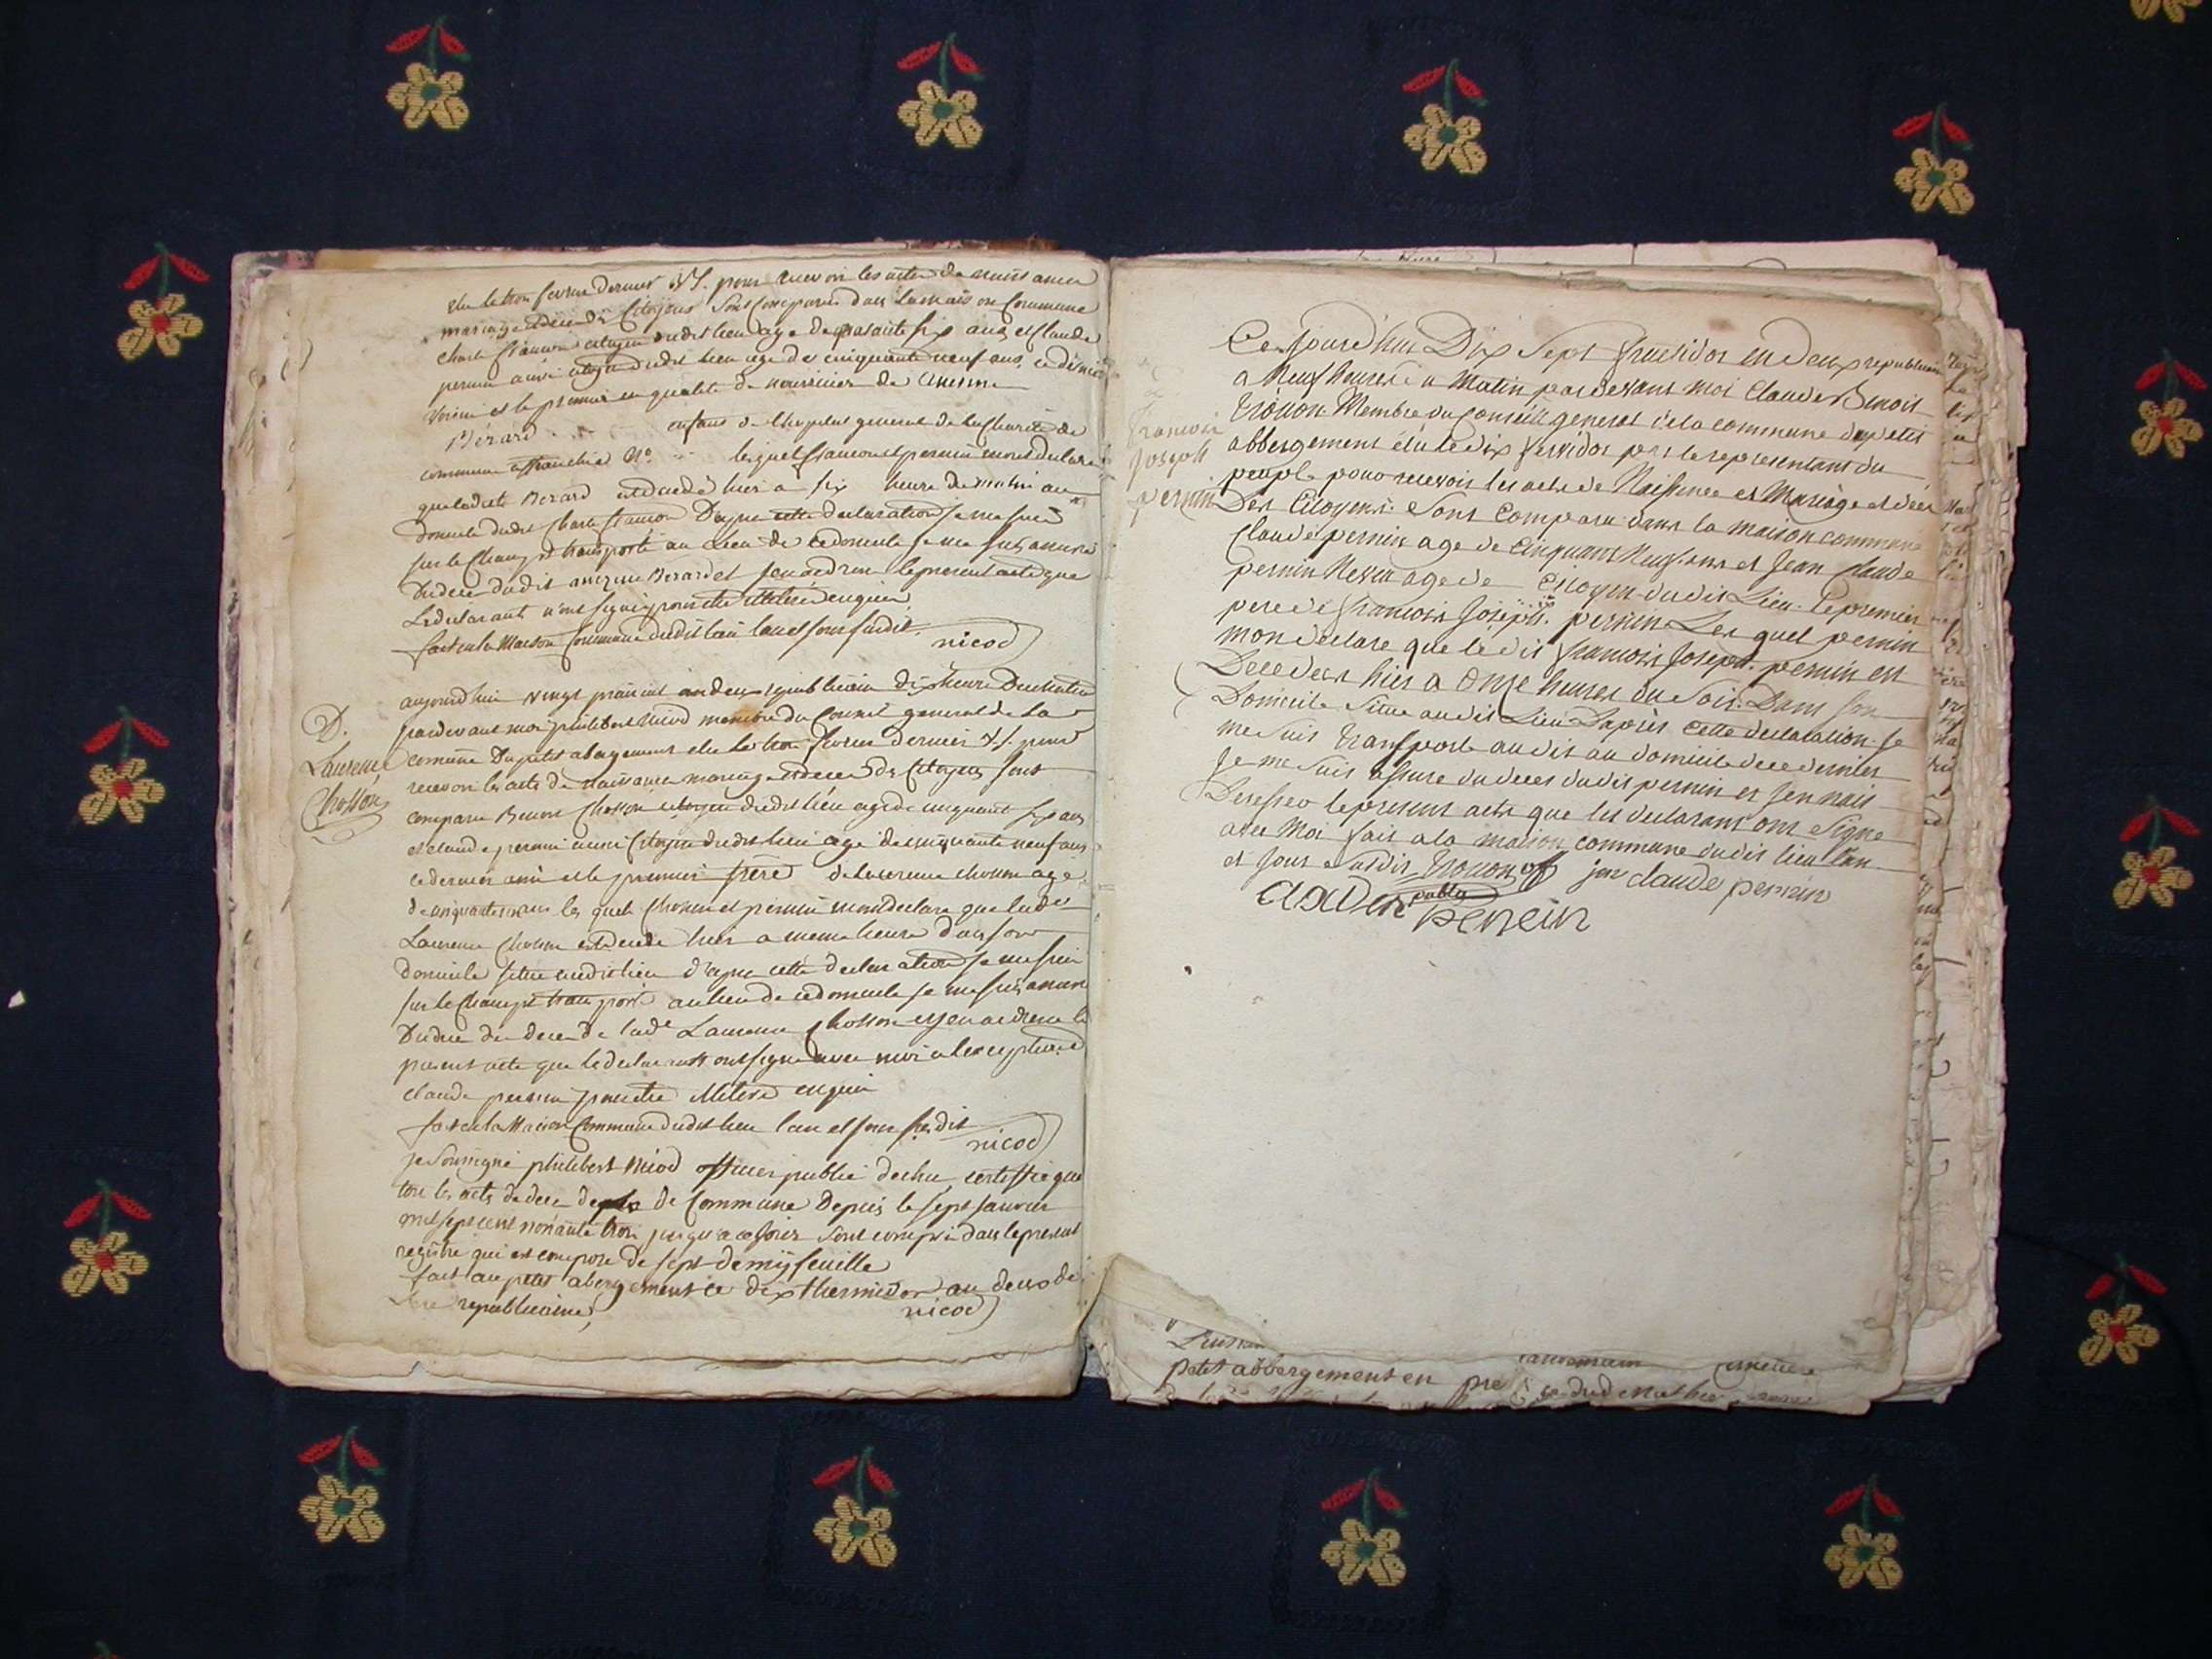 elu le trois fevrier dernier V.S. pour recevoir les actes de naissance
mariage et deces des Citoyens sont comparu dans la maison Commune
charle francon citoyen dudit lieu age de quarante six ans et Claude
pernin aussi citoyen dudit lieu age de cinquante neuf ans, ce dernier
voisin et le premier en qualité de nourricier de
Bérard enfant de l'hopital general de la Charité de
commune affranchie N° lesquels francon et pernin mont declaré
que ladite Berard est decedé hier a six heure du matin au
domicile dudit Charle francon Dapres cette declaration je me suis
sur le Champ transporté au Lieu de ce domicile je me suis assuré
du deces dudit Berard et jen ai dressé le present acte que
Les declarant n'ont signé pour etre illiteré enquis
fait en la Maison Commune dudit lieu lan et jour susdit.
nicod
aujourdhui vingt prairial an deux republicain dix heure du matin
pardevant moi philibert nicod membre du Conseil general de la
comune du petit abergement elu le trois fevrier dernier V.S. pour
recevoir les acts de naissance mariage et deces des Citoyens sont
comparu Benoit Chosson citoyen dudit lieu age de cinquante six ans
et claude pernin aussi Citoyen dudit lieu agé de cinquante neuf ans
ce dernier ami et le premier frere de Laurence chosson agé
de cinquante les quels Chosson et pernin mont declare que lade
Laurence Chosson est decedé hier a meme heure dans son
domicile situé audit lieu d'apres cette declaration je me suis
sur le champ transporté au lieu de ce domicile je me suis assuré
du deces de lade Laurence Chosson et jen ai dressé le
present acte que les declarant ont signé avec moi a lexception de
claude pernin pour etre illiteré enquis
fait en la Maison Commune dudit lieu lan et jour susdit
nicod
D.
Laurence
Chosson
je soussigné philibert nicod officier public dechu, certiffie que
tous les acts de deces de Commune Depuis le sept janvier
mil sept cent nonante trois jusqu'a ce jour sont compri dans le present
registre qui est composé de sept demy feuille
fait au petit abergement ce dix thermidor an deux de
lere republicaine,
nicod
Ce jourd'hui Dix Sept fructidor en deux republicain
a Neuf heures du Matin pardevant moi Claude Benoit
trouon Membre du Conseill general de la commune du petit
abbergement élu le dix par le representant du
peuple pour recevoir les acte de Naissence et Mariage et décé
Des Citoyens. Sont comparu dans la maison commune
Claude pernin age de Cinquant Neuf ans et Jean claude
pernin Neveu age de Citoyen dudit Lieu. le premier
pere de francois Joseph pernin Lesquel pernin
mon declare que le dit francois Joseph pernin est
Decedéer hier a Onze heures du Soir Dans son
Domicile Situe audit Lieu Daprès cette declaration je
me suis transporte audit au domicile de ce dernier
Je me suis assure du deces dudit pernin et jen nais
Deresser le present acte que les declarant ont signe
avec Moi fait a la maison commune dudit lieu lan
et jour Susdit trouon off jen claude pernin
public
claude pernin
francois
joseph
pernin
petit abbergement en